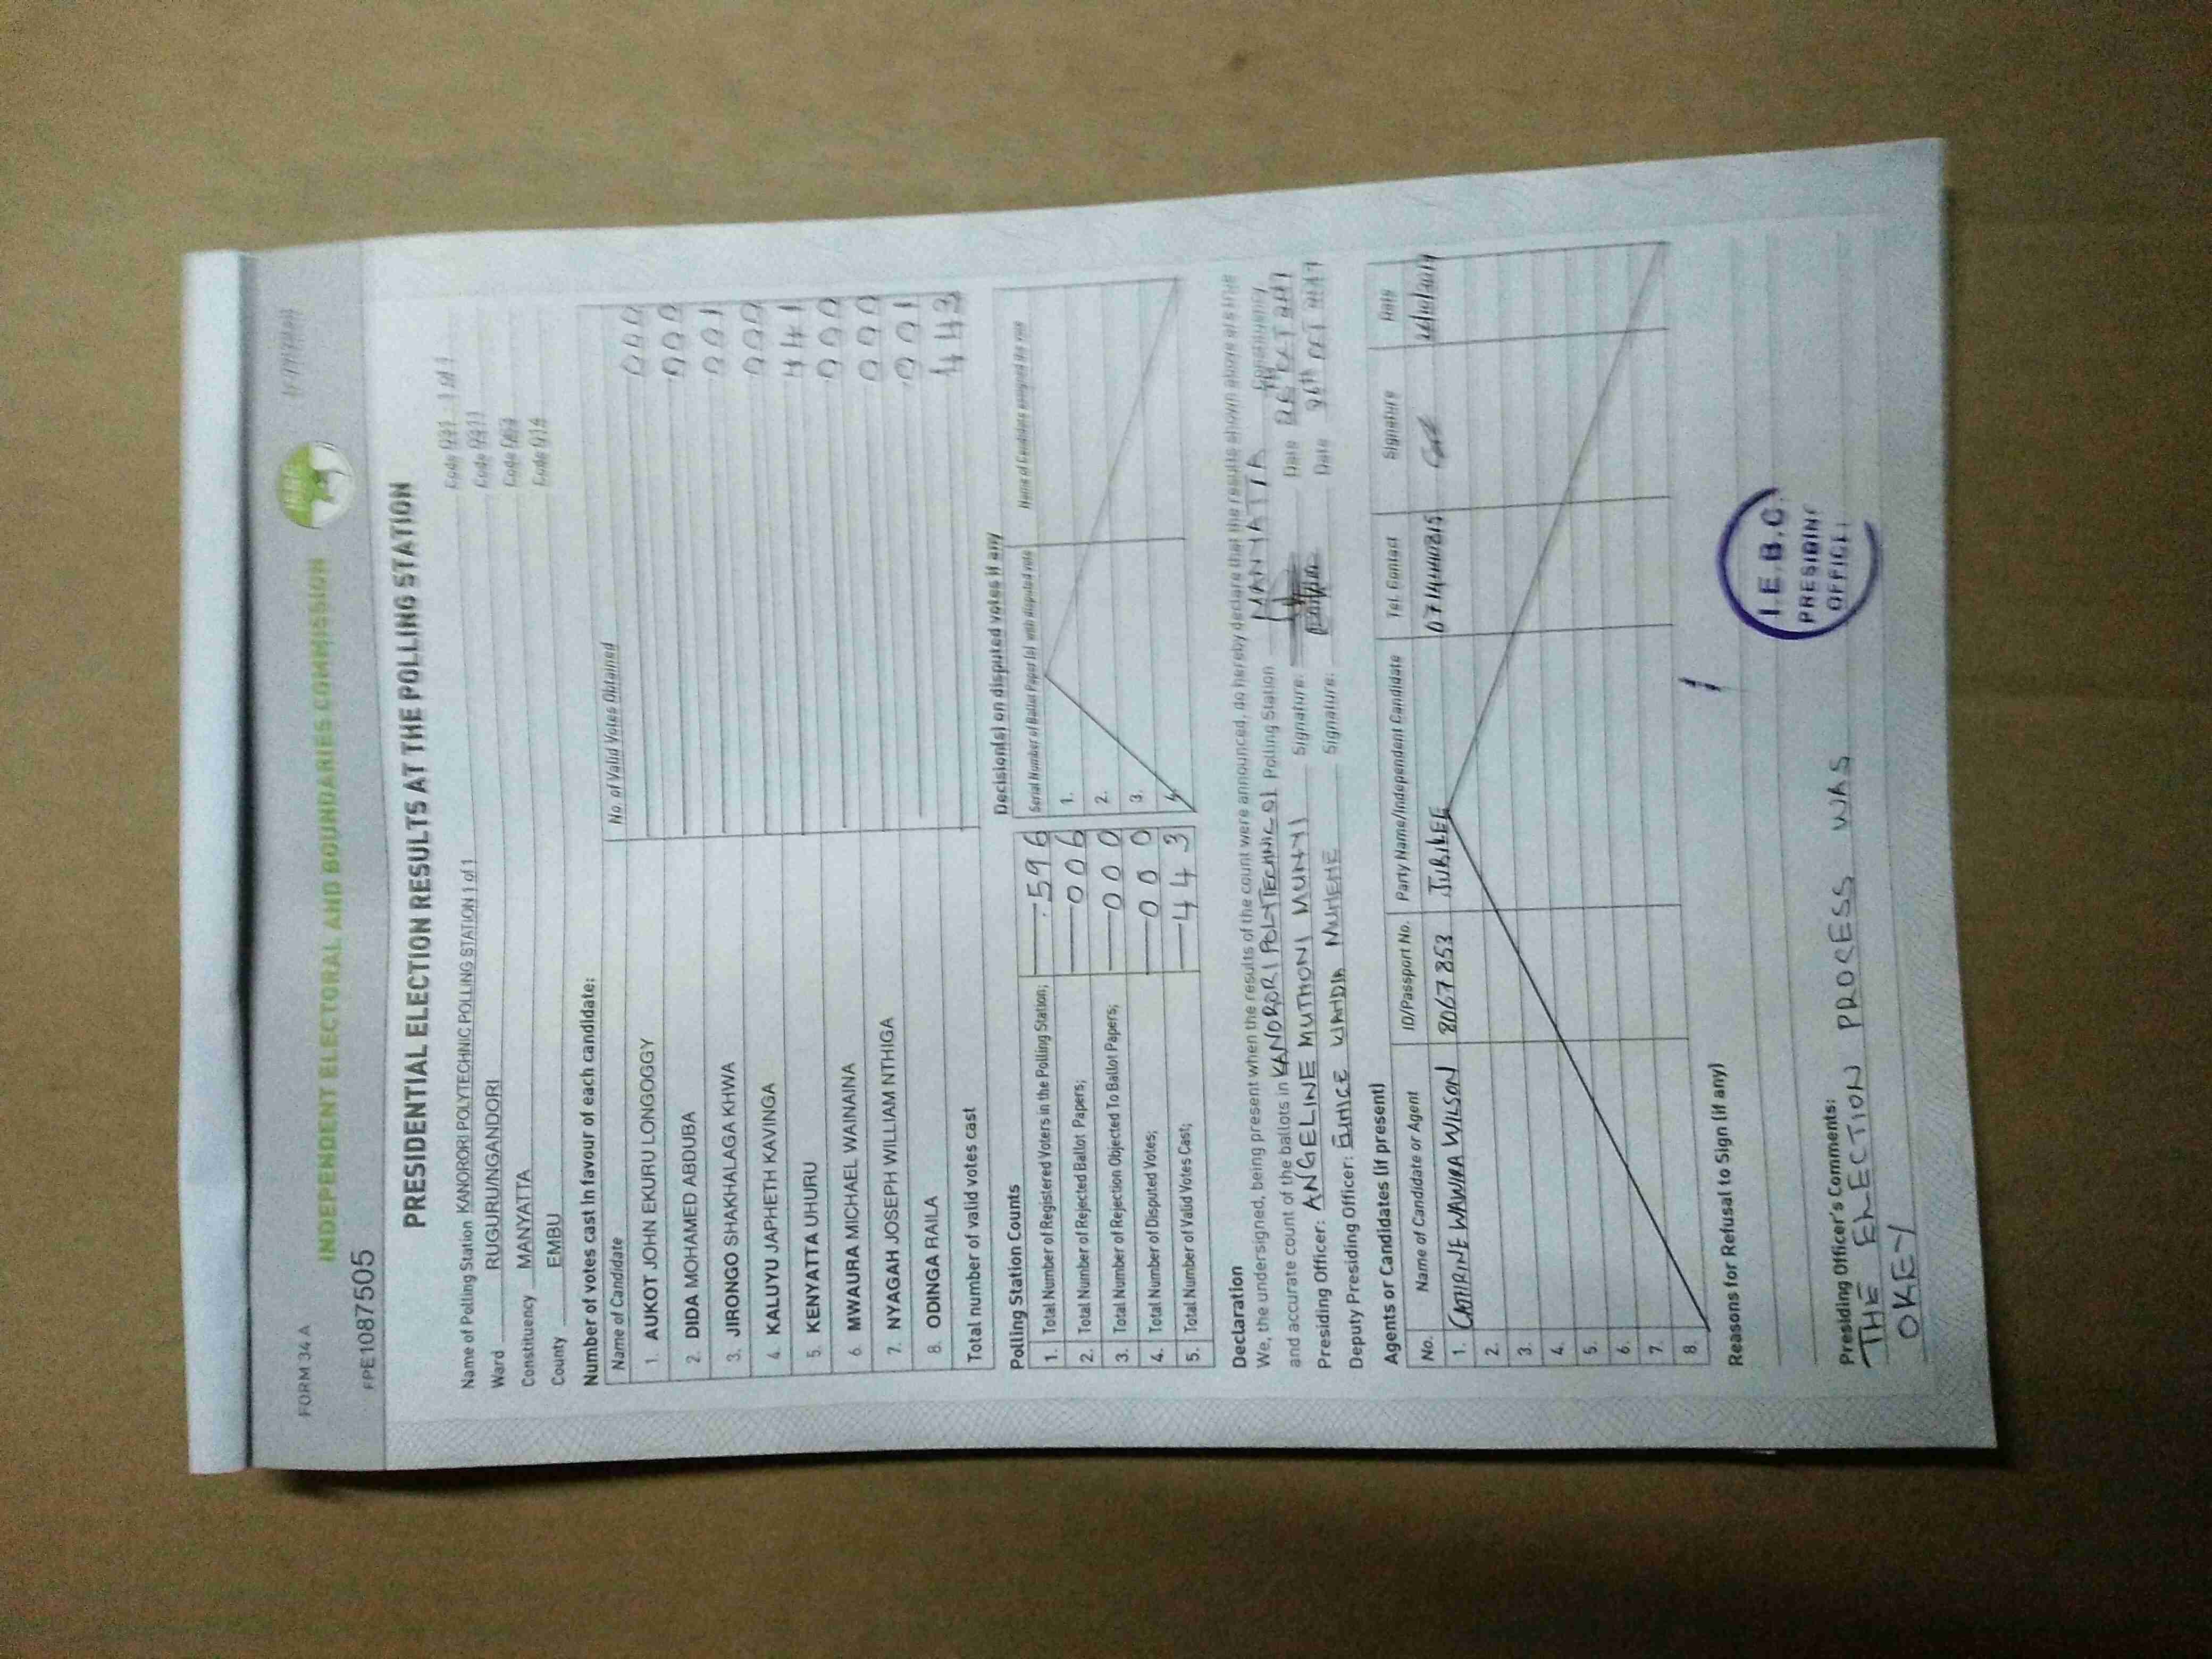 FORM 34 A
INDEPENDENT ELECTORAL AND BOUNDARIES COMMISSION
IEBC
FPE1087505
PRESIDENTIAL ELECTION RESULTS AT THE POLLING STATION
Name of Polling Station KANORORI POLYTECHNIC POLLING STATION 1 of 1 Code 021 1 of 1
Ward RUGURU/NGANDORI Code
Constituency MANYATTA Code
County EMBU Code 014
Number of votes cast in favour of each candidate:
Name of Candidate No. of Valid Votes Obtained
1. AUKOT JOHN EKURU LONGOGGY 000
2. DIDA MOHAMED ABDUBA 000
3. JIRONGO SHAKHALAGA KHWA 001
4. KALUYU JAPHETH KAVINGA 000
5. KENYATTA UHURU 441
6. MWAURA MICHAEL WAINAINA 000
7. NYAGAH JOSEPH WILLIAM NTHIGA 000
8. ODINGA RAILA 001
Total number of valid votes cast 443
Polling Station Counts
1. Total Number of Registered Voters in the Polling Station; 596
2. Total Number of Rejected Ballot Papers; 006
3. Total Number of Rejection Objected To Ballot Papers; 000
4. Total Number of Disputed Votes; 000
5. Total Number of Valid Votes Cast; 443
Decision(s) on disputed votes if any
Serial Number of Ballot Paper (s) with disputed vote Name of Candidate assigned the vote
1.
2.
3.
4.
Declaration
We, the undersigned, being present when the results of the count were announced, do hereby declare that the results shown above is a true
and accurate count of the ballots in KANORORI POLYTECHNIC 01 Polling Station MANYATTA Constituency
Presiding Officer: ANGELINE MUTHONI MUNYI Signature: Date 26 OCT 2017
Deputy Presiding Officer: EUNICE WANDIA Signature: Date 26th OCT 2017
Agents or Candidates (if present)
No. Name of Candidate or Agent ID/Passport No. Party Name/Independent Candidate Tel. Contact Signature Date
1. CATHIRINE WAWIRA WILSON 8067853 JUBILEE
2.
3.
4.
5.
6.
7.
8.
Reasons for Refusal to Sign (if any)
Presiding Officer's Comments:
THE ELECTION PROCESS WAS
OKEY
I.E.B.C.
PRESIDING